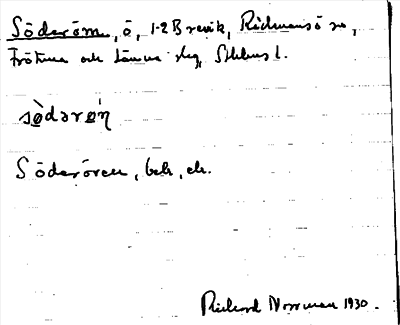 Söderöm, ö, 1-2 Brevik, Rådmansö sn,
Frötuna och Länna slg, Sthlms l.
sò̀dərø̀ŋ
Söderören, beb., ek.
Rickard Norrman 1930.